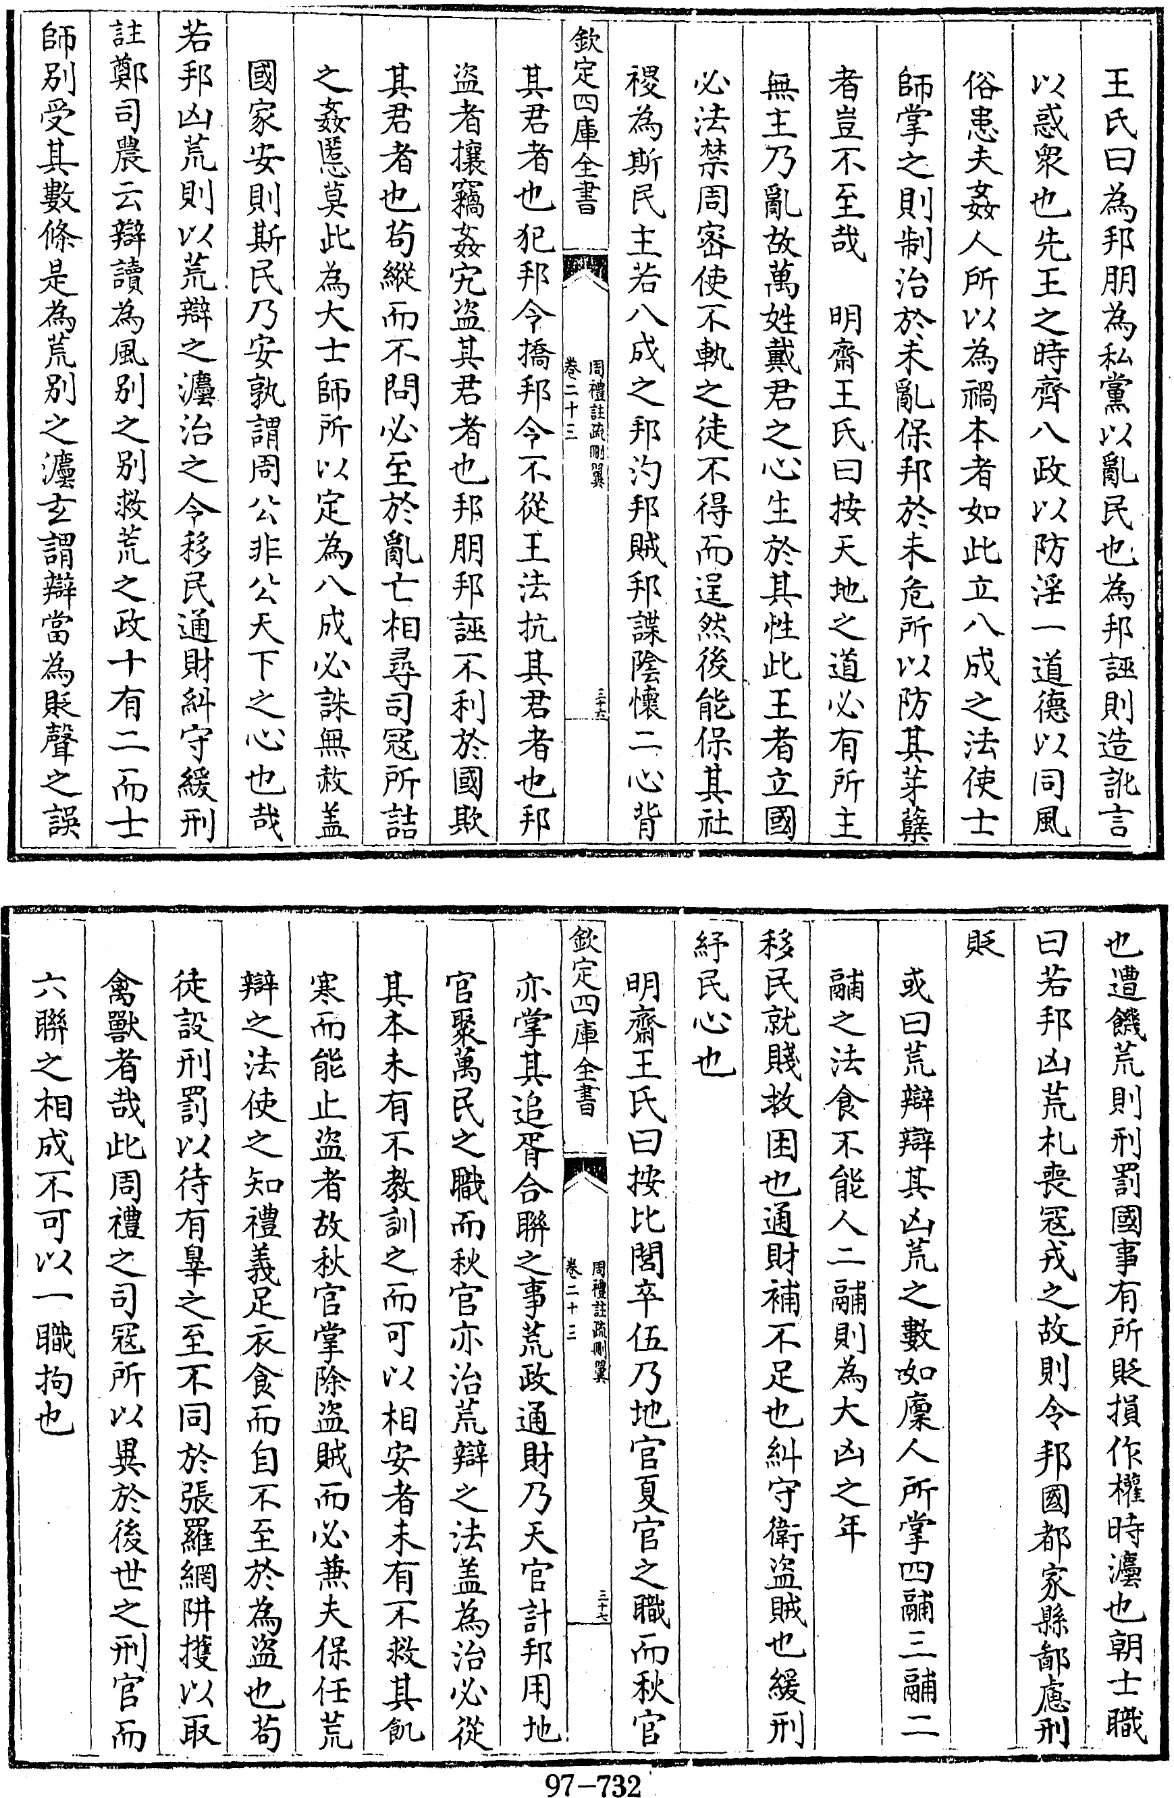 王氏曰為邦朋為私黨以亂民也為邦誣則造訛言
以惑衆也先王之時齊八政以防淫一道德以同風
俗患夫姦人所以為禍本者如此立八成之法使士
師掌之則制治於未亂保邦於未危所以防其芽蘖
者豈不至哉　明齋王氏曰按天地之道必有所主
無主乃亂故萬姓戴君之心生於其性此王者立國
必法禁周密使不軌之徒不得而逞然後能保其社
稷為斯民主若八成之邦汋邦賊邦諜陰懷二心背
欽定四庫全書
周禮註疏刪翼
卷二十三
三十六
其君者也犯邦令撟邦令不從王法抗其君者也邦
盗者攘竊姦宄盗其君者也邦朋邦誣不利於國欺
其君者也茍縱而不問必至於亂亡相尋司寇所詰
之姦慝莫此為大士師所以定為八成必誅無赦盖
國家安則斯民乃安孰謂周公非公天下之心也哉
若邦凶荒則以荒辯之灋治之令移民通財糾守緩刑
註鄭司農云辯讀為風别之别救荒之政十有二而士
師别受其數條是為荒别之灋玄謂辯當為貶聲之誤
也遭饑荒則刑罰國事有所貶損作權時灋也朝士職
曰若邦凶荒札喪寇戎之故則令邦國都家縣鄙慮刑
貶
或曰荒辯辯其凶荒之數如廩人所掌四鬴三鬴二
鬴之法食不能人二鬴則為大凶之年
移民就賤救困也通財補不足也糾守衛盗賊也緩刑
紓民心也
明齋王氏曰按比閭卒伍乃地官夏官之職而秋官
欽定四庫全書
周禮註疏刪翼
卷二十三
三十七
亦掌其追胥合聯之事荒政通財乃天官計邦用地
官聚萬民之職而秋官亦治荒辯之法盖為治必從
其本未有不教訓之而可以相安者未有不救其飢
寒而能止盗者故秋官掌除盗賊而必兼夫保任荒
辯之法使之知禮義足衣食而自不至於為盗也茍
徒設刑罰以待有辠之至不同於張羅網阱擭以取
禽獸者哉此周禮之司寇所以異於後世之刑官而
六聯之相成不可以一職拘也
97-732